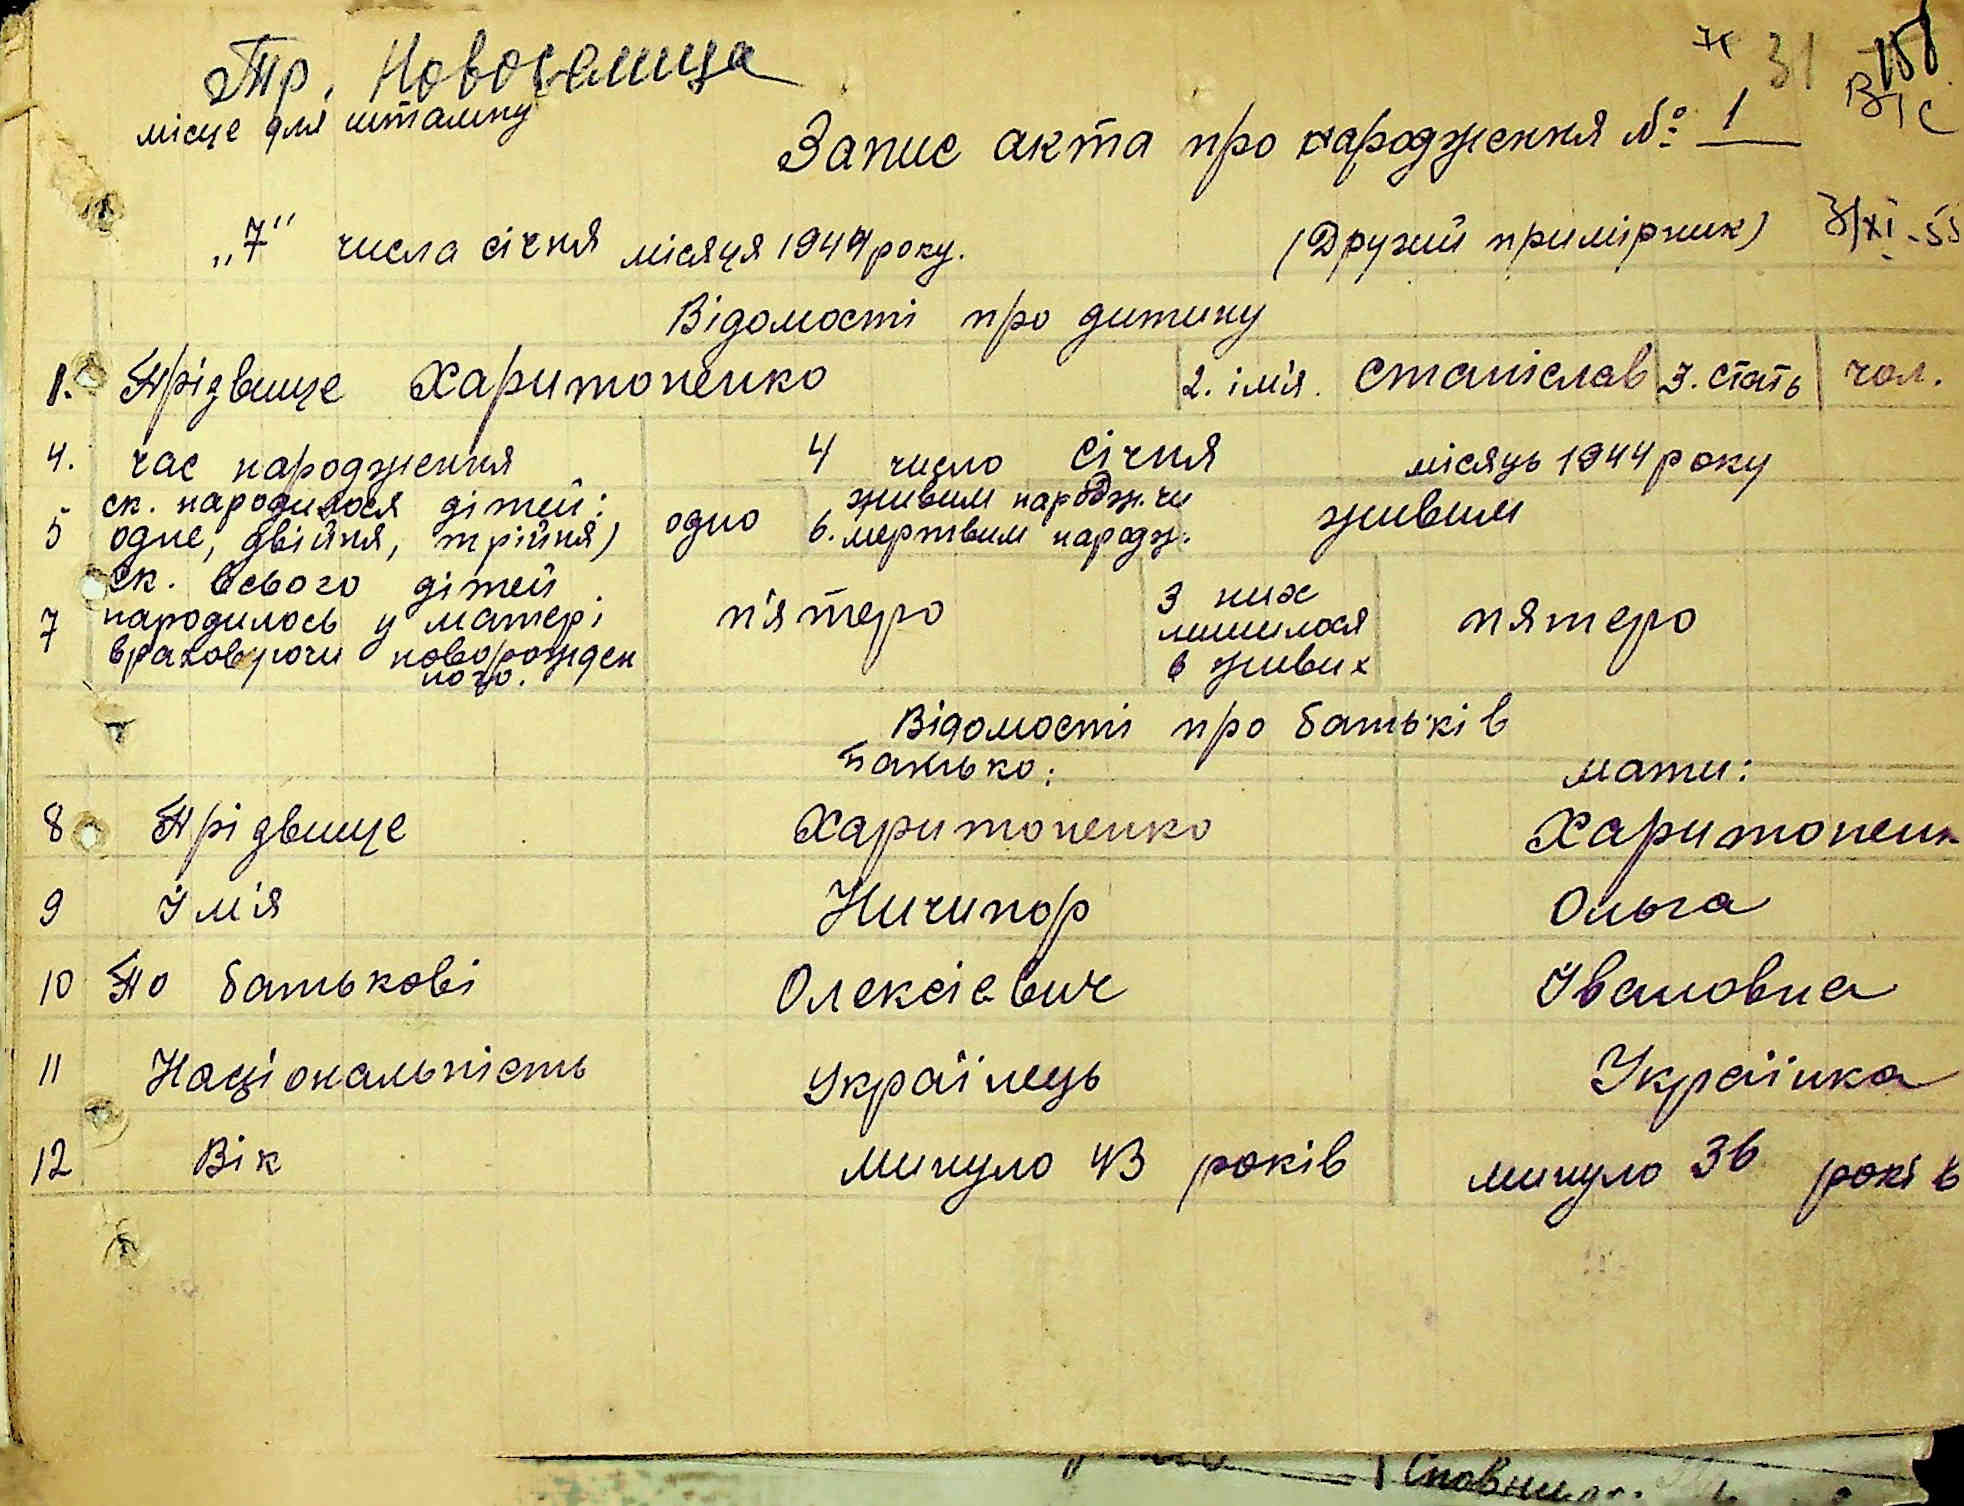 Тр. Новоселиця
ж 31 158
В/с
місце для штампу
Запис акта про народження №: 1
„7“ числа січня місяця 1944 року. (Другий примірник) 3/XI-55
Відомості про дитину
1. Прізвище Харитоненко 2. ім'я. Станіслав 3. стать чол.
4. час народження 4 число січня місяць 1944 року
5 ск. народилося дітей: одне, двійня, трійня) одно 6. живим народж. чи мертвим народж. живим
7 ск. всього дітей народилось у матері враховуючи новорожден ного. п'ятеро З них лишилося в живих пятеро
Відомості про батьків
батько: мати:
8 Прізвище Харитоненко Харитоненк
9 Ім'я Ничипор Ольга
10 По батькові Олексієвич Івановна
11 Національність Українець Українка
12 Вік минуло 43 років минуло 36 років